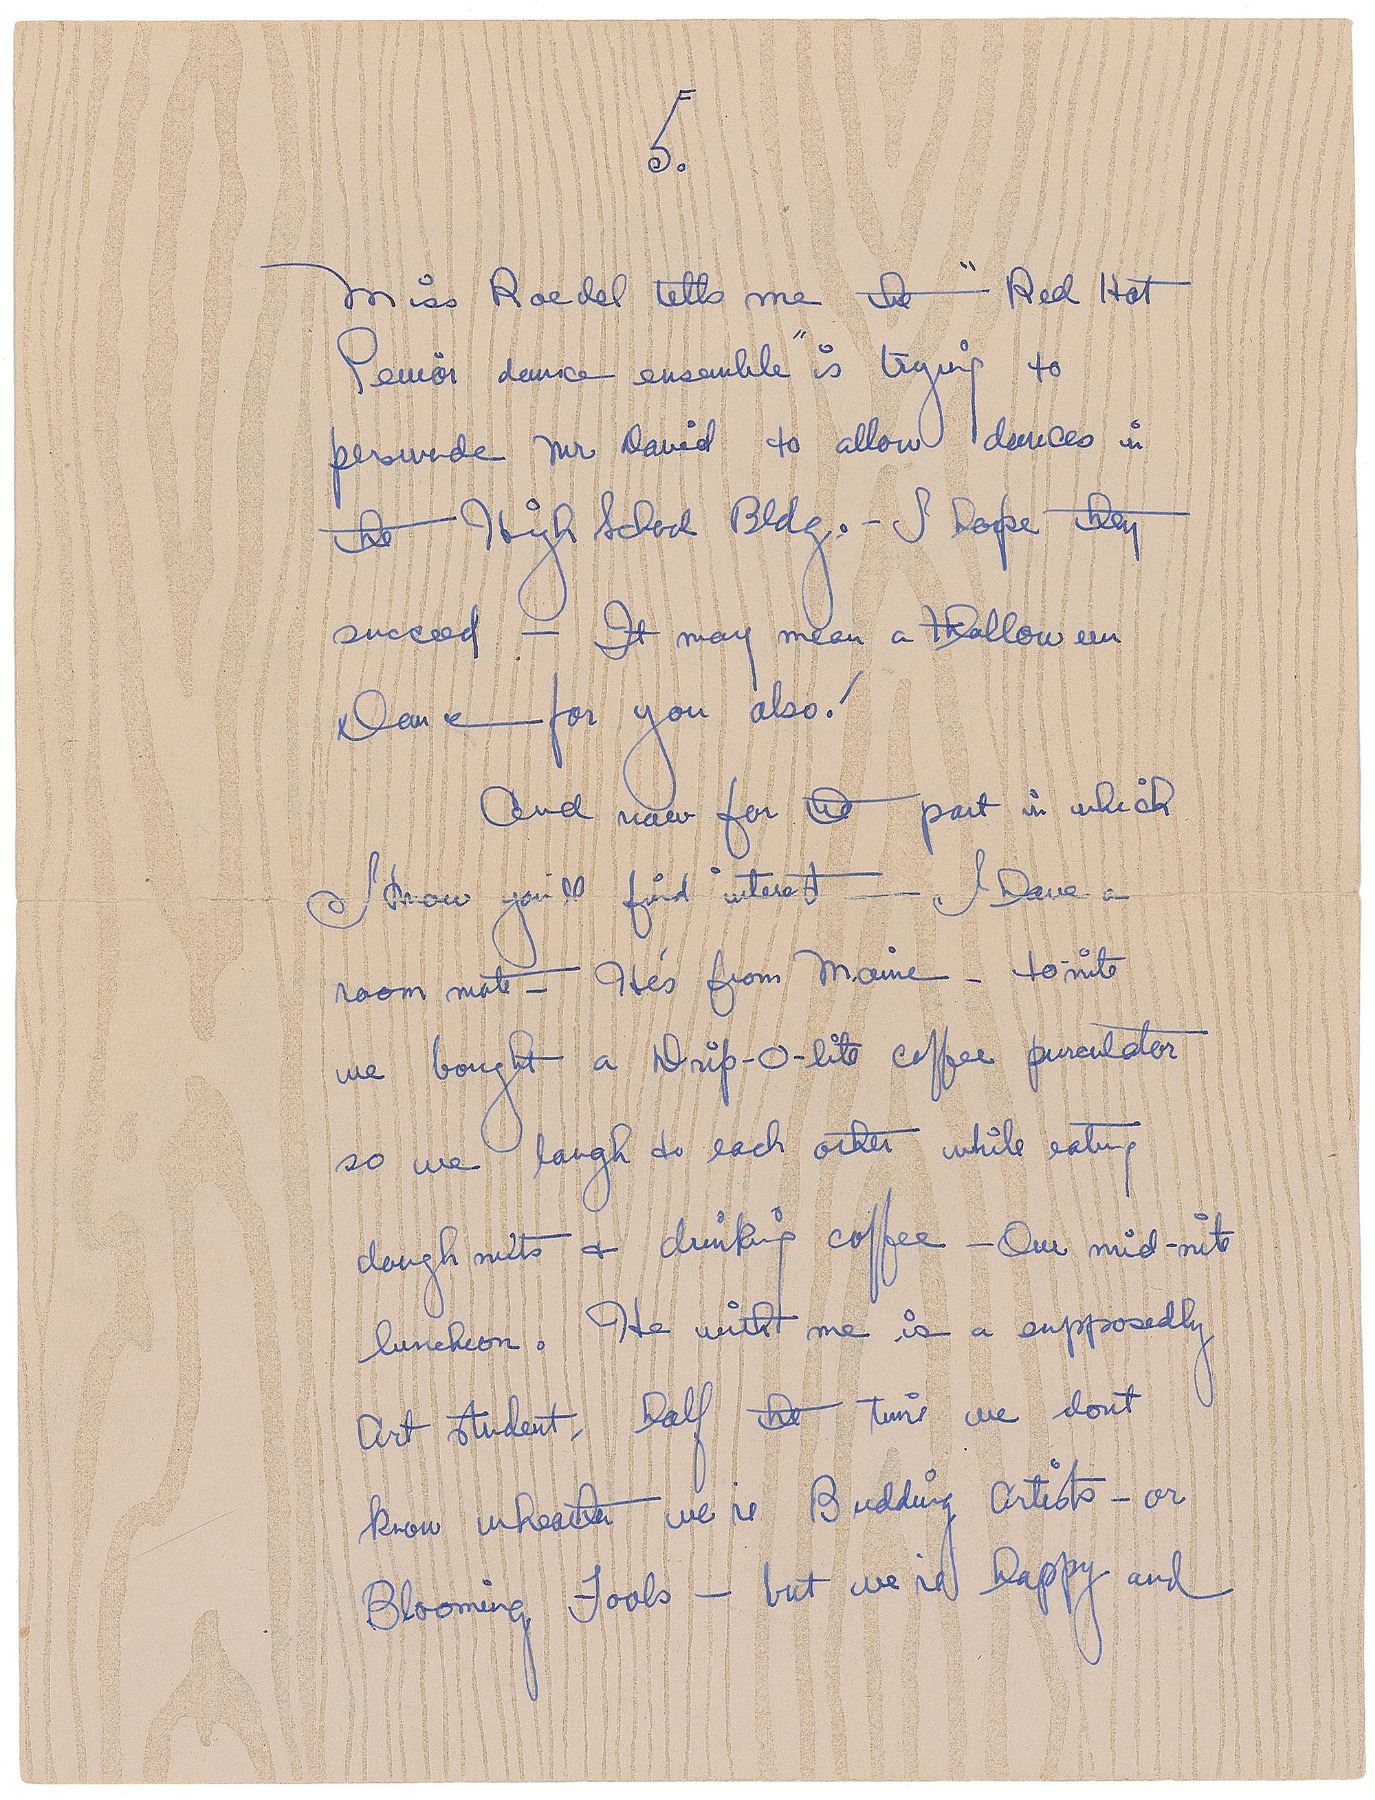 5.
Miss Roedel tells me the "Red Hot
Senior dance ensemble" is trying to
persuade Mr David to allow dances in
the High School Bldg. - I hope they
succeed - It may mean a Halloween
Dance for you also!
And now for the part in which
I know you'll find interest - I have a
room mate - He's from Maine - to-nite
we bought a Drip-O-lite coffee purculator
so we laugh to each other while eating
dough nuts & drinking coffee - Our mid-nite
luncheon. He with me is a supposedly
Art student, half the time we dont
know wheather we're Budding Artists - or
Blooming Fools - but we're happy and